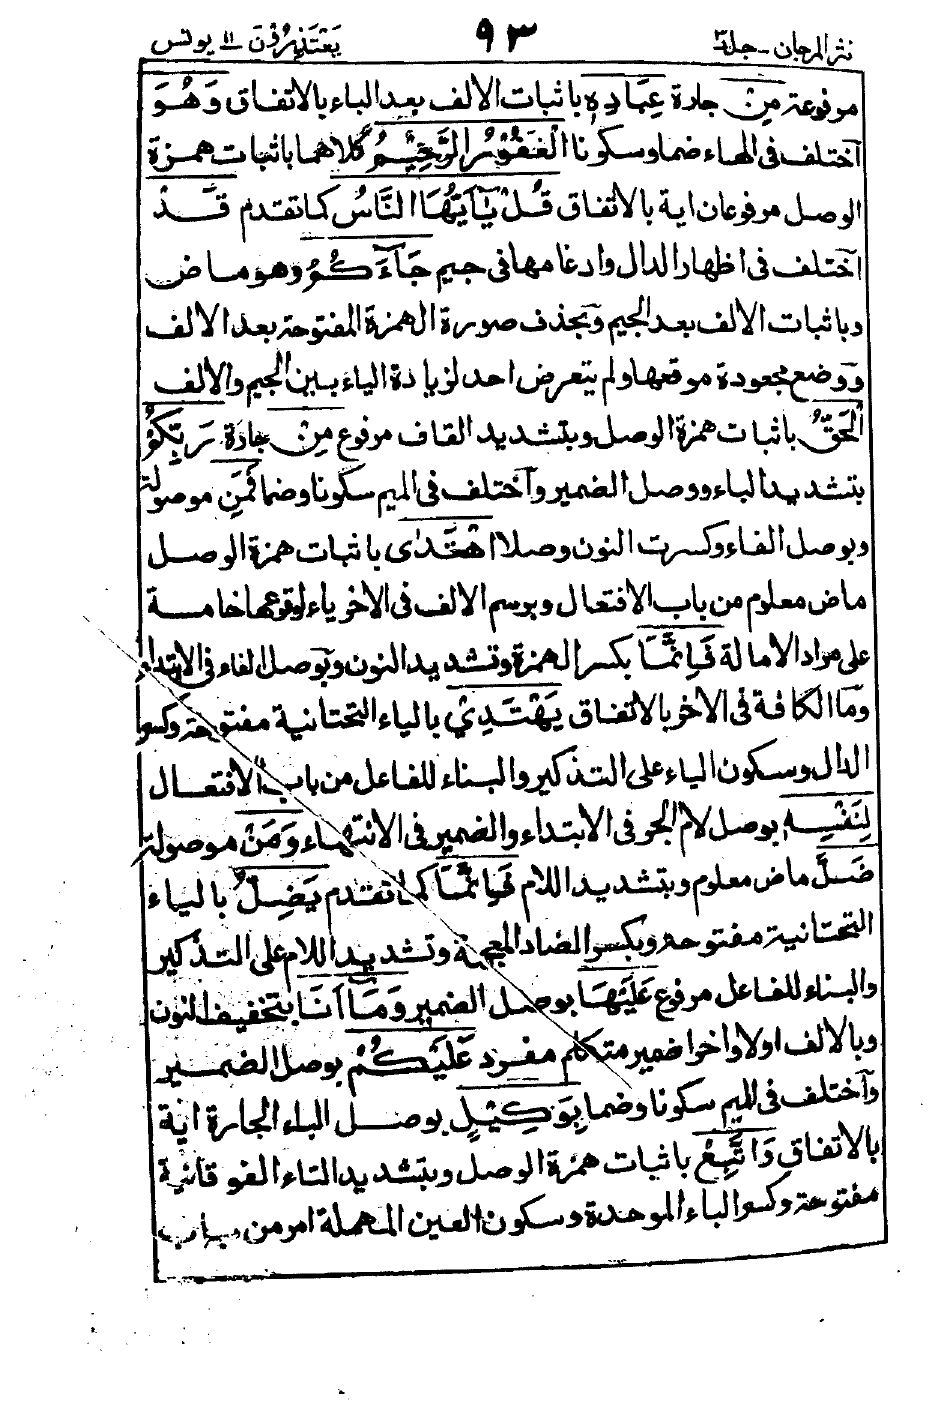 نثر المرجان - جلد۳ ۹۳ یعتذرون ۱۱ یونس
موفوعة مِنْ جارة عِبَادِهٖ باثبات الالف بعد الباء بالاتفاق وَهُوَ
اختلف فى الهاء ضما وسكونا الْغَفُوْرُ الرَّحِيْمُ كلاهما باثبات همزة
الوصل مرفوعان اية بالاتفاق قُلْ يٰٓاَيُّهَا النَّاسُ كما تقدم قَدْ
اختلف فى اظهار الدال وادغامها فى جيم جَآءَكُمُ وهو ماض
وباثبات الالف بعد الجيم وبحذف صورة الهمزة المفتوحة بعد الالف
ووضع مجعودة موقعها ولم يتعرض احد لزيادة الياء بين الجيم والالف
الْحَقُّ باثبات همزة الوصل وبتشديد القاف مرفوع مِنْ جارة رَبِّكُمْ
بتشديد الباء ووصل الضمير واختلف فى الميم سكونا وضما فَمَنِ موصولة
وبوصل الفاء وكسرت النون وصلا اهْتَدٰى باثبات همزة الوصل
ماض معلوم من باب الافتعال وبرسم الالف فى الاخر ياء لوقوعها خامسة
على مراد الامالة فَاِنَّمَا بكسر الهمزة وتشديد النون وبوصل الفاء فى الابتداء
وما الكافة فى الاخر بالاتفاق يَهْتَدِيْ بالياء التحتانية مفتوحة وكسر
الدال وسكون الياء على التذكير والبناء للفاعل من باب الافتعال
لِنَفْسِهٖ بوصل لام الجر فى الابتداء والضمير فى الانتهاء وَمَنْ موصولة
ضَلَّ ماض معلوم وبتشديد اللام فَاِنَّمَا كما تقدم يَضِلُّ بالياء
التحتانية مفتوحة وبكسر الضاد المعجمة وتشديد اللام على التذكير
والبناء للفاعل مرفوع عَلَيْهَا بوصل الضمير وَمَا اَنَا بتخفيف النون
وبالالف اولا واخرا ضمير متكلم مفرد عَلَيْكُمْ بوصل الضمير
واختلف فى الميم سكونا وضما بِوَكِيْلٍ بوصل الباء الجارة اية
بالاتفاق وَاتَّبِعْ باثبات همزة الوصل وبتشديد التاء الفوقانية
مفتوحة وكسر الباء الموحدة وسكون العين المهملة امر من باب